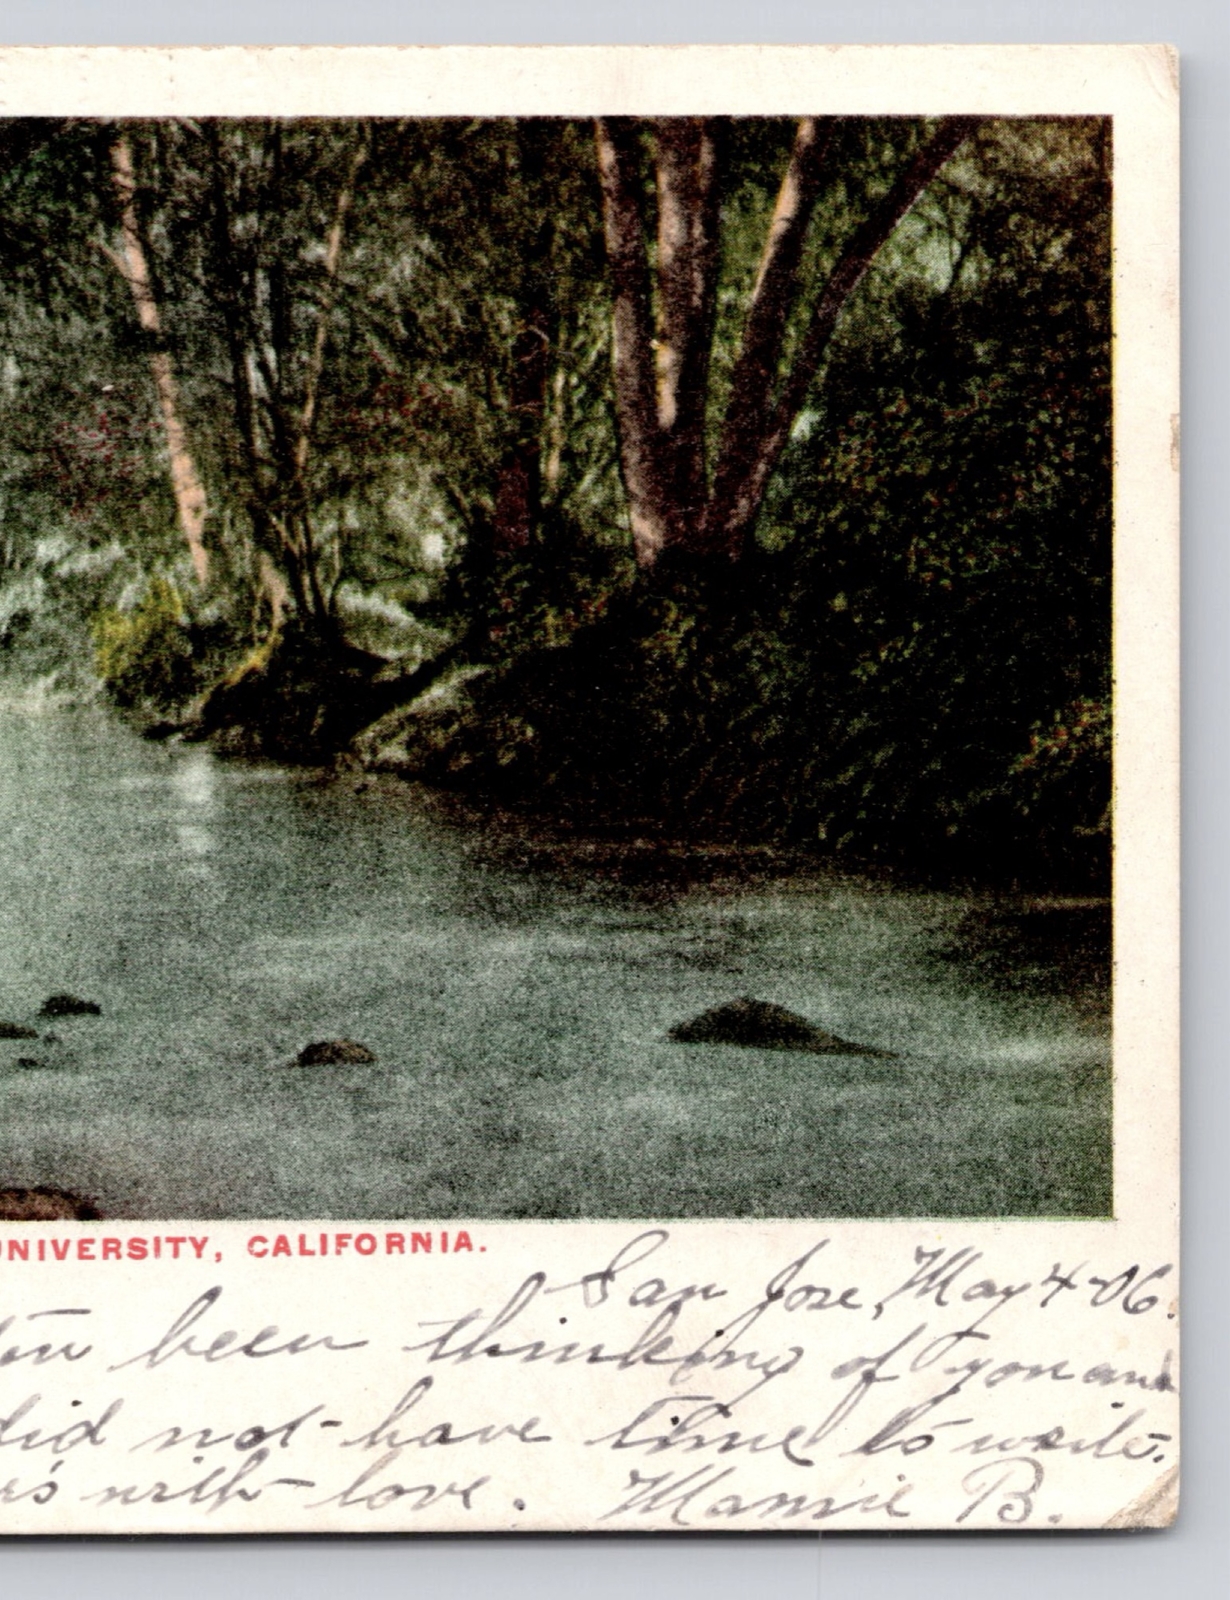 UNIVERSITY, CALIFORNIA.
San Jose, May 4-06.
been thinking of you and
did not have time to write.
with love. Mamie B.